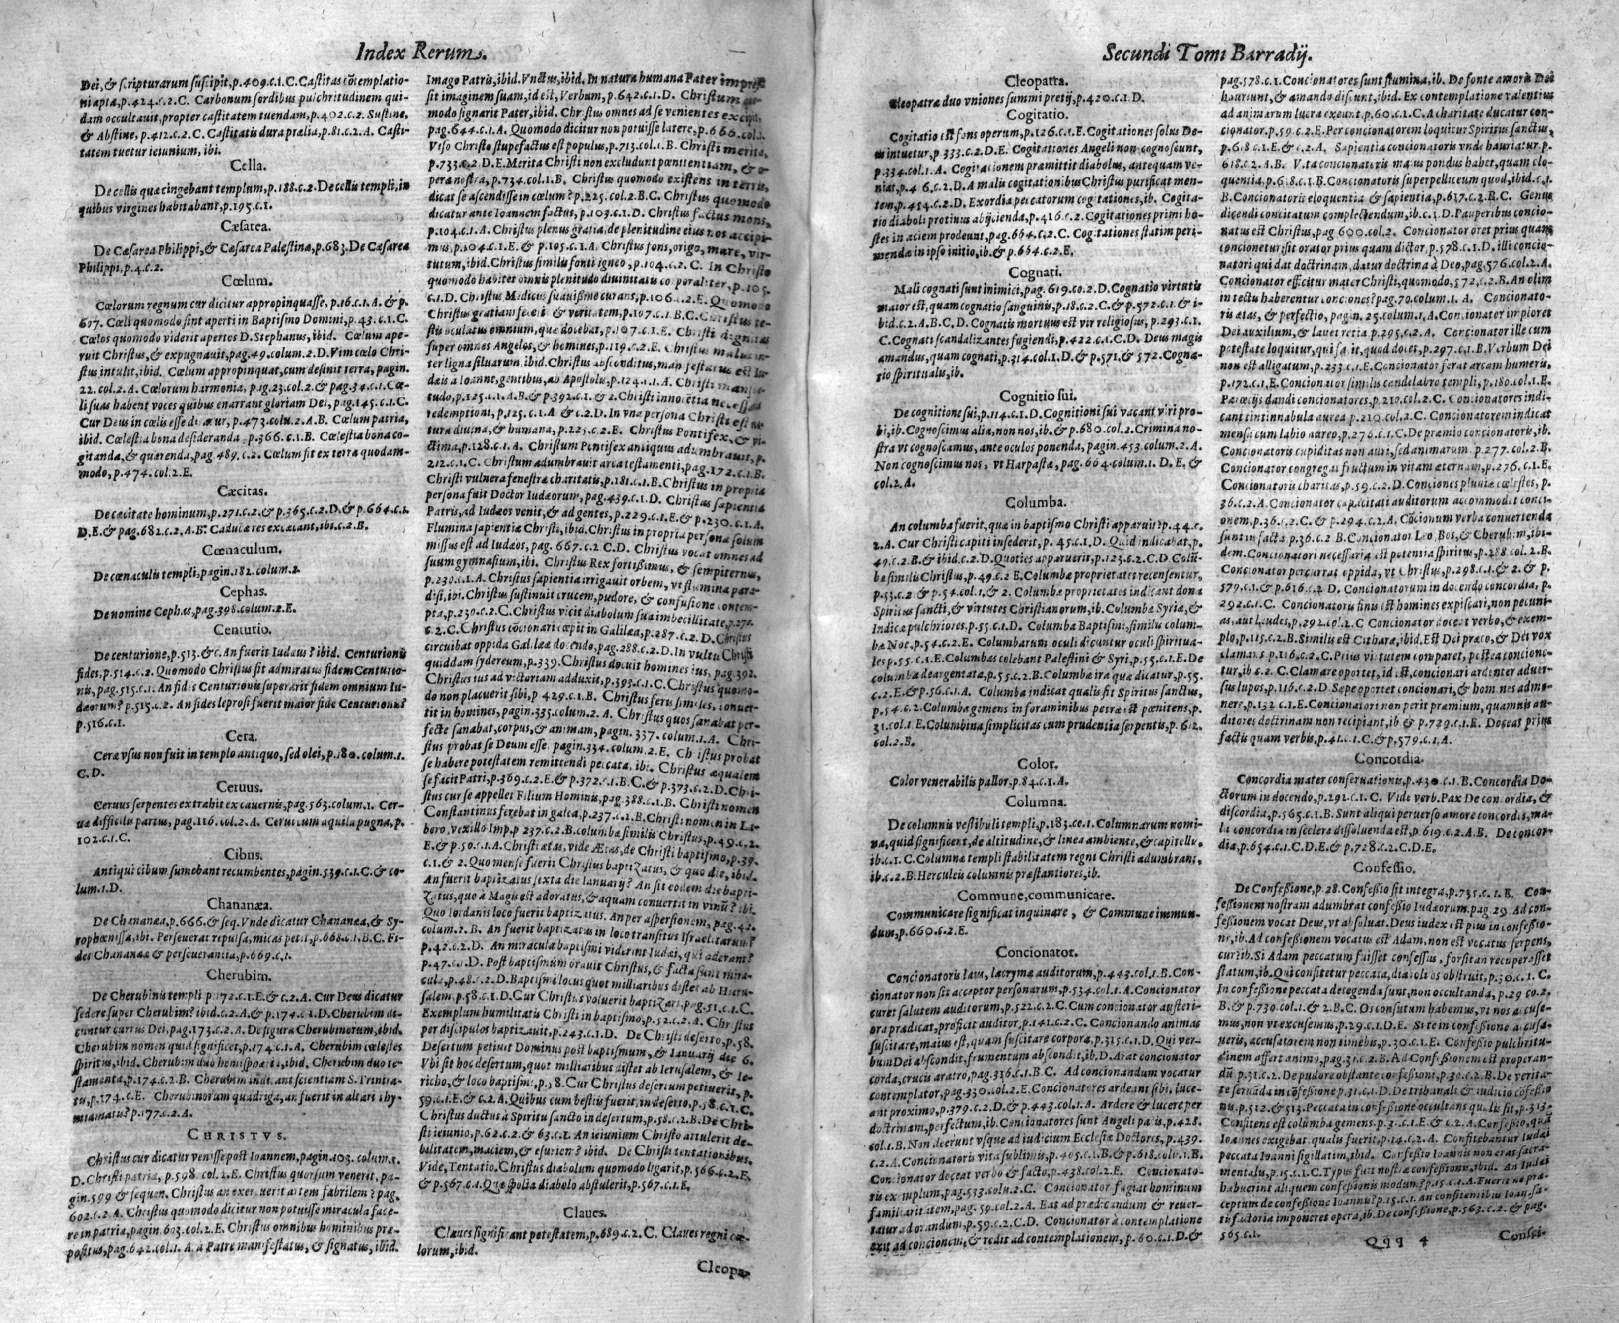 Index Rerum.
Dei, & scripturarum suscipit, p.409.c.1.C. Castitas cōtemplatio-
ni apta, p.424.c.2.C. Carbonum sordibus pulchritudinem qui-
dam occultauit, propter castitatem tuendam, p.402.c.2. Sustine,
& Abstine, p.412.c.2.C. Castitatis dura prælia, p.81.c.2.A. Casti-
tatem tuetur ieiunium, ibi.
Cella.
De cellis quæ cingebant templum, p.188.c.2. De cellis templi, in
quibus virgines habitabant, p.195.c.1.
Cæsarea.
De Cæsarea Philippi, & Cæsarea Palestina, p.683. De Cæsarea
Philippi, p.4.c.2.
Cœlum.
Cœlorum regnum cur dicitur appropinquasse, p.16.c.1.A. & p.
617. Cœli quomodo sint aperti in Baptismo Domini, p.43.c.1.C.
Cœlos quomodo viderit apertos D. Stephanus, ibid. Cœlum ape-
ruit Christus, & expugnauit, pag.49.colum.2.D. Vim cœlo Chri-
stus intulit, ibid. Cœlum appropinquat, cum desinit terra, pagin.
22.col.2.A. Cœlorum harmonia, pag.23.col.2. & pag.34.c.1. Cœ-
li suas habent voces quibus enarrant gloriam Dei, pag.145.c.1.C.
Cur Deus in cœlis esse dicatur, p.473.colu.2.A.B. Cœlum patria,
ibid. Cœlestia bona desideranda, p.366.c.1.B. Cœlestia bona co-
gitanda, & quærenda, pag 489.c.2. Cœlum sit ex terra quodam-
modo, p.474.col.2.E.
Cæcitas.
De cæcitate hominum, p.271.c.2. & p.365.c.2.D. & p.664.c.1.
D.E. & pag.682.c.2.A.B. Caducæ res excæcant, ibi.c.2.B.
Cœnaculum.
De cœnaculis templi, pagin.182.colum.2.
Cephas.
De nomine Cephas, pag.398.colum.2.E.
Centurio.
De centurione, p.513. &c. An fuerit Iudæus? ibid. Centurionis
fides, p.514.c.2. Quomodo Christus sit admiratus fidem Centurio-
nis, pag.515.c.1. An fides Centurionis superarit fidem omnium Iu-
dæorum? p.515.c.2. An fides leprosi fuerit maior fide Centurionis?
p.516.c.1.
Cera.
Ceræ vsus non fuit in templo antiquo, sed olei, p.180.colum.1.
C.D.
Ceruus.
Ceruus serpentes extrahit ex cauernis, pag.563.colum.1. Cer-
uæ difficilis partus, pag.116.col.2.A. Cerui cum aquila pugna, p.
102.c.1.C.
Cibus.
Antiqui cibum sumebant recumbentes, pagin.539.c.1.C. & co-
lum.1.D.
Chananæa.
De Chananæa, p.666. & seq. Vnde dicatur Chananæa, & Sy-
rophœnissa, ibi. Perseuerat repulsa, micas petit, p.668.c.1.B.C. Fi-
des Chananææ & perseuerantia, p.669.c.1.
Cherubim.
De Cherubinis templi p.172.c.1.E. & c.2.A. Cur Deus dicatur
sedere super Cherubim? ibid.c.2.A. & p.174.c.1.D. Cherubim di-
cuntur currus Dei, pag.173.c.2.A. De figura Cherubinorum, ibid.
Cherubim nomen quid significet, p.174.c.1.A. Cherubim cœlestes
spiritus, ibid. Cherubim duo hemisphæria, ibid. Cherubim duo te-
stamenta, p.174.c.2.B. Cherubim indicant scientiam S. Trinita-
tis, p.174.c.E. Cherubinorum quadriga, an fuerit in altari thy-
miamatis? p.177.c.2.A.
CHRISTVS.
Christus cur dicatur venisse post Ioannem, pagin.103.colum.1.
D. Christi patria, p.598.col.1.E. Christus quorsum venerit, pa-
gin.599 & sequen. Christus an exercuerit artem fabrilem? pag.
602.c.2.A. Christus quomodo dicitur non potuisse miracula face-
re in patria, pagin.603.col.2.E. Christus omnibus hominibus pro-
positus, pag.642.col.1.A. a Patre manifestatus, & signatus, ibid.
Imago Patris, ibid. Vnctus, ibid. In natura humana Pater impres-
sit imaginem suam, id est, Verbum, p.642.c.1.D. Christum
modo signarit Pater, ibid. Christus omnes ad se venientes
pag.644.c.1.A. Quomodo dicitur non potuisse latere, p.666.col.1.
Viso Christo stupefactus est populus, p.713.col.1.B. Christi merita,
p.733.c.2.D.E. Merita Christi non excludunt pœnitentiam, & o-
pera nostra, p.734.col.1.B. Christus quomodo existens in terris,
dicat se ascendisse in cœlum? p.225.col.2.B.C. Christus quomodo
dicatur ante Ioannem factus, p.103.c.1.D. Christus factus mons,
p.104.c.1.A. Christus plenus gratia, de plenitudine eius nos accipi-
mus, p.104.c.1.E. & p.105.c.1.A. Christus fons, origo, mare, vir-
tutum, ibid. Christus similis fonti igneo, p.104.c.2.C. In Christo
quomodo habitet omnis plenitudo diuinitatis corporaliter, p.105.
c.1.D. Christus Medicus suauissime curans, p.106.c.2.E. Quomodo
Christus gratiam fecit & veritatem, p.107.c.1.B.C. Christus te-
stis oculatus omnium, quæ docebat, p.107.c.1.E. Christi dignitas
super omnes Angelos, & homines, p.119.c.2.E. Christus malus in-
ter ligna siluarum ibid. Christus absconditus, manifestatus est Iu-
dæis a Ioanne, gentibus, ab Apostolis, p.124.c.1.A. Christi mansue-
tudo, p.125.c.1.A.B. & p.392.c.1. & 2. Christi innocentia necessaria
redemptioni, p.125.c.1.A & c.2.D. In vna persona Christi est na-
tura diuina, & humana, p.225.c.2.E. Christus Pontifex, & vi-
ctima, p.128.c.1.A. Christum Pontifex antiquus adumbrauit, p.
212.c.1.C. Christum adumbrauit arca testamenti, pag.172.c.1.B.
Christi vulnera fenestræ charitatis, p.181.c.1.B. Christus in propria
persona fuit Doctor Iudæorum, pag.439.c.1.D. Christus sapientia
Patris, ad Iudæos venit, & ad gentes, p.229.c.1.E. & p.230.c.1.A.
Flumina sapientiæ Christi, ibid. Christus in propria persona solum
missus est ad Iudæos, pag.667.c.2 C.D. Christus vocat omnes ad
suum gymnasium, ibi. Christus Rex fortissimus, & sempiternus,
p.230.c.1.A. Christus sapientia irrigauit orbem, vt flumina para-
disi, ibi. Christus sustinuit crucem, pudore, & confusione contem-
pta, p.230.c.2.C. Christus vicit diabolum sua imbecillitate, p.272.
c.2.C. Christus cōcionari cœpit in Galilæa, p.287.c.2.D. Christus
circuibat oppida Galilææ docendo, pag.288.c.2.D. In vultu Christi
quiddam sydereum, p.339. Christus docuit homines ius, pag.392.
Christus ius ad victoriam adduxit, p.393.c.1.C. Christus quomo-
do non placuerit sibi, p 429.c.1.B. Christus feris similes, conuer-
tit in homines, pagin.335.colum.2.A. Christus quos sanabat per-
fecte sanabat, corpus, & animam, pagin.337.colum.1.A. Chri-
stus probat se Deum esse, pagin.334.colum.2.E. Christus probat
se habere potestatem remittendi peccata, ibi. Christus æqualem
se facit Patri, p.369.c.2.E. & p.372.c.1.B.C. & p.373.c.2.D. Chri-
stus cur se appellet Filium Hominis, pag.388.c.1.B. Christi nomen
Constantinus ferebat in galea, p.237.c.2.B. Christi nomen in La-
baro, vexillo Imp. p 237.c.2.B. columbæ similis Christus, p.49.c.2.
E. & p.50.c.1.A. Christi ætas, vide Ætas, de Christi baptismo, p.39.
c.1. & 2. Quo mense fuerit Christus baptizatus, & quo die, ibid.
An fuerit baptizatus sexta die Ianuarij? An sit eodem die bapti-
zatus, quo a Magis est adoratus, & aquam conuertit in vinū? ibi.
Quo Iordanis loco fuerit baptizatus. An per aspersionem, pag.42.
colum.2.B. An fuerit baptizatus in loco transitus Israelitarum?
p.42.c.2.D. An miracula baptismi viderint Iudæi, qui aderant?
p.47.col.D. Post baptismum orauit Christus, & facta sunt mira-
cula, p.48.c.2.D. Baptismi locus quot milliaribus distet ab Hieru-
salem, p.58.c.1.D. Cur Christus voluerit baptizari, pag.51.c.1.C.
Exemplum humilitatis Christi in baptismo, p.52.c.2.A. Christus
per discipulos baptizauit, p.243.c.1.D. De Christi deserto, p.58.
Desertum petiuit Dominus post baptismum, & Ianuarij die 6.
Vbi sit hoc desertum, quot milliaribus distet ab Ierusalem, & Ie-
richo, & loco baptismi, p.58. Cur Christus desertum petiuerit, p.
59.c.1.E. & c.2.A. Quibus cum bestiis fuerit, in deserto, p.58.c.1.C.
Christus ductus a Spiritu sancto in desertum, p.58.c.2.B. De Chri-
sti ieiunio, p.62.c.2. & 63.c.1. An ieiunium Christo attulerit de-
bilitatem, maciem, & esuriem? ibid. De Christi tentationibus,
Vide, Tentatio. Christus diabolum quomodo ligarit, p.566.c.2.E.
& p.567.c.1. Quæ spolia diabolo abstulerit, p.567.c.1.E.
Claues.
Claues significant potestatem, p.689.c.2.C. Claues regni cœ-
lorum, ibid.
Cleopa-
Secundi Tomi Barradij.
Cleopatra.
Cleopatræ duo vniones summi pretij, p.420.c.1.D.
Cogitatio.
Cogitatio est fons operum, p.126.c.1.E. Cogitationes solus De-
us intuetur, p 333.c.2.D.E. Cogitationes Angeli non cognoscunt,
p.334.col.1.A. Cogitationem præmittit diabolus, antequam ve-
niat, p.4 6.c.2.D. A malis cogitationibus Christus purificat men-
tem, p.454.c.2.D. Exordia peccatorum cogitationes, ib. Cogita-
tio diaboli protinus abijcienda, p.416.c.2. Cogitationes primi ho-
stes in aciem prodeunt, pag.664.c.2.C. Cogitationes statim peri-
mendæ in ipso initio, ib. & p.664.c.2.E.
Cognati.
Mali cognati sunt inimici, pag.619.co.2.D. Cognatio virtutis
maior est, quam cognatio sanguinis, p.18.c.2.C. & p.572.c.1. & i-
bid.c.2.A.B.C.D. Cognatis mortuus est vir religiosus, p.293.c.1.
C. Cognati scandalizantes fugiendi, p.422.c.1.C.D. Deus magis
amandus, quam cognati, p.314.col.1.D. & p.571. & 572. Cogna-
tio spiritualis, ib.
Cognitio sui.
De cognitione sui, p.114.c.1.D. Cognitioni sui vacant viri pro-
bi, ib. Cognoscimus alia, non nos, ib. & p.680.col.2. Crimina no-
stra vt cognoscamus, ante oculos ponenda, pagin.453.colum.2.A.
Non cognoscimus nos, vt Harpasta, pag.604.colum.1. D. E. &
col.2.A.
Columba.
An columba fuerit, quæ in baptismo Christi apparuit? p.44.c.
2.A. Cur Christi capiti insederit, p. 45.c.1.D. Quid indicabat, p.
49.c.2.B. & ibid.c.2.D. Quoties apparuerit, p.123.c.2.C.D Colū-
bæ similis Christus, p.49.c.2 E. Columbæ proprietates recensentur,
p.53.c.2 & p.54.col.1. & 2. Columbæ proprietates indicant dona
Spiritus sancti, & virtutes Christianorum, ib. Columbæ Syriæ, &
Indicæ pulchriores, p.55.c.1.D. Columbæ Baptismi, similis colum-
ba Noe, p.54.c.2.E. Columbarum oculi dicuntur oculi spiritua-
les p.55.c.1.E. Columbas colebant Palestini & Syri, p.55.c.1.E. De
columba deargentata, p.55.c.2.B. Columbæ ira quæ dicatur, p.55.
c.2.E. & p.56.c.1.A. Columba indicat qualis sit Spiritus sanctus,
p.54.c.2. Columba gemens in foraminibus petræ est pœnitens, p.
31.col.1.E. Columbina simplicitas cum prudentia serpentis, p.612.
col.2.B.
Color.
Color venerabilis pallor, p.84.c.1.A.
Columna.
De columnis vestibuli templi, p.183.co.1. Columnarum nomi-
na, quid significent, de altitudine, & linea ambiente, & capitello.
ib.c.1.C. Columnæ templi stabilitatem regni Christi adumbrant,
ib.c.2.B. Herculeis columnis præstantiores, ib.
Commune, communicare.
Communicare significat inquinare, & Commune immun-
dum, p.660.c.2.E.
Concionator.
Concionatoris laus, lacrymæ auditorum, p.443.col.1.B. Con-
cionator non sit acceptor personarum, p.534.col.1.A. Concionator
curet salutem auditorum, p.522.c.2.C. Cum concionator austeri-
ora prædicat, proficit auditor, p.141.c.2.C. Concionando animas
suscitare, maius est, quam suscitare corpora, p.315.c.1.D. Qui ver-
bum Dei abscondit, frumentum abscondit, ib.D. Arat concionator
corda, crucis aratro, pag.316.c.1.B.C. Ad concionandum vocatur
contemplator, pag.330.col.2.E. Concionatores ardeant sibi, luce-
ant proximo, p.379.c.2.D. & p.443.col.1.A. Ardere & lucere per
doctrinam, perfectum, ib. Concionatores sunt Angeli pacis, p.428.
col.1.B. Non deerunt vsque ad iudicium Ecclesiæ Doctores, p.439.
c.2.A. Concionatoris vita sublimis, p.405.c.1.B. & p.618.colu.1.B.
Concionator doceat verbo & facto, p.438.col.2.E. Concionato-
ris exemplum, pag.533.colu.2.C. Concionator fugiat hominum
familiaritatem, pag.59.col.2.A. Eat ad prædicandum & reuer-
tatur ad orandum, p.59.c.2.C.D. Concionator a contemplatione
exit ad concionem, & redit ad contemplationem, p.60.c.1.D. &
pag.578.c.1. Concionatores sunt flumina, ib. De fonte amoris Dei
hauriunt, & amando discunt, ibid. Ex contemplatione valentius
ad animarum lucra exeunt, p.60.c.1.C. A charitate ducatur con-
cionator, p.59.c.2.E. Per concionatorem loquitur Spiritus sanctus,
p.618 c.1.E. & c.2.A. Sapientia concionatoris vnde hauriatur, p.
618.c.2.A.B. Vita concionatoris maius pondus habet, quam elo-
quentia, p.618.c.1.B. Concionatoris superpelliceum quod, ibid.c.1.
B. Concionatoris eloquentia & sapientia, p.617.c.2.B.C. Genus
dicendi concitatum complectendum, ib.c.1.D. Pauperibus concio-
natus est Christus, pag 600.col.2. Concionator oret prius quam
concionetur; sit orator prius quam dictor, p.578.c.1.D. illi concio-
natori qui dat doctrinam, datur doctrina à Deo, pag.576.col.2.A.
Concionator efficitur mater Christi, quomodo, 572.c.2.B. An olim
in tectis haberentur conciones? pag.70.colum.1.A. Concionato-
ris ætas, & perfectio, pagin.25.colum.1.A. Concionator imploret
Dei auxilium, & lauet retia p.295.c.2.A. Concionator ille cum
potestate loquitur, qui facit, quod docet, p.297.c.1.B. Verbum Dei
non est alligatum, p.233.c.1.E. Concionator ferat arcam humeris,
p.172.c.1.E. Concionator similis candelabro templi, p.180.col.1.E.
Pacē ijs dandi concionatores, p.210.col.2.C. Concionatores indi-
cant tintinnabula aurea p.210.col.2.C. Concionatorem indicat
mensa cum labio aureo, p.276.c.1.C. De præmio concionatoris, ib.
Concionatoris cupiditas non auri, sed animarum. p.277.col.2.B.
Concionator congregat fructum in vitam æternam, p.276.c.1.E.
Concionatoris charitas, p.59.c.2.D. Conciones pluuiæ cœlestes, p.
36.c.2.A. Concionator capacitati auditorum accommodet conci-
onem, p.36.c.2.C. & p.294.c.2.A. Cōcionum verba conuertenda
sunt in facta p.36.c.2 B. Concionator Leo, Bos, & Cherubim, ibi-
dem. Concionatori necessaria est potentia spiritus, p.288.col.2.B.
Concionator percurrat oppida, vt Christus, p.298.c.1. & 2. & p.
579.c.1. & p.616.c.2 D. Concionatorum in docendo concordia, p.
292.c.1.C. Concionatoris finis est homines expiscari, non pecuni-
as, aut laudes, p.292.col.2.C Concionator doceat verbo, & exem-
plo, p.115.c.2.B. Similis est Citharæ, ibid. Est Dei præco, & Dei vox
clamans p.116.c.2.C. Prius virtutem comparet, postea concione-
tur, ib 6.2.C. Clamare oportet, id est, concionari ardenter aduer-
sus lupos, p.116.c.2.D. Sæpe oportet concionari, & homines admo-
nere, p.132 c.1.E. Concionatori non perit præmium, quamuis au-
ditores doctrinam non recipiant, ib & p.729.c.1.E. Doceas prius
factis quam verbis, p.41.c.1.C. & p.579.c.1.A.
Concordia.
Concordia mater conseruationis, p.430.c.1.B. Concordia Do-
ctorum in docendo, p.292.c.1.C. Vide verb. Pax De concordia, &
discordia, p.565.c.1.B. Sunt aliqui peruerso amore concordis, ma-
la concordia in scelere dissoluenda est, p.619.c.2.A.B. De concor-
dia, p.654.c.1.C.D.E. & p.728.c.2.C.D.E.
Confessio.
De Confessione, p.28. Confessio sit integra, p.735.c.1.E. Con-
fessionem nostram adumbrat confessio Iudæorum, pag 29. Ad con-
fessionem vocat Deus, vt absoluat. Deus iudex est pius in confessio-
ne, ib. Ad confessionem vocatus est Adam, non est vocatus serpens,
cur? ib. Si Adam peccatum fuisset confessus, forsitan recuperasset
statum, ib. Qui confitetur peccata, diaboli os obstruit, p.30.c.1.C.
In confessione peccata detegenda sunt, non occultanda, p.29 co.2.
B. & p.730.col.1. & 2.B.C. Os consutum habemus, vt nos accuse-
mus, non vt excusemus, p.29.c.1.D.E. Si te in confessione accusa-
ueris, accusatorem non timebis, p.30.c.1.E. Confessio pulchritu-
dinem affert animæ, pag.31.c.2.B. Ad Confessionem est properan-
dū, p.31.c.2. De pudore obstante confessioni, p.30.c.2.B. De verita-
te seruanda in cōfessione p.31.c.1.D. De tribunali & iudicio cōfessio-
nis, p.512. & 513. Peccata in confessione occultans qualis sit, p.313.
Confitens est columba gemens, p.31.c.1.E. & c.2.A. Confessio, quā
Ioannes exigebat, qualis fuerit, p.14.c.2.A. Confitebantur Iudæi
peccata Ioanni sigillatim, ibid. Confessio Ioannis non erat sacra-
mentalis, p.15.c.1.C. Typus fuit nostræ confessionis, ibid. An Iudæi
habuerint aliquem confessionis modum? p.15.c.1.A. Fuerit ne præ-
ceptum de confessione Ioannis? p.15.c.1. an confitentibus Ioan. sa-
tisfactoria imponeret opera, ib. De confessione, p.563.c.2. & pag.
565.c.1.
Qqq 4
Confes-